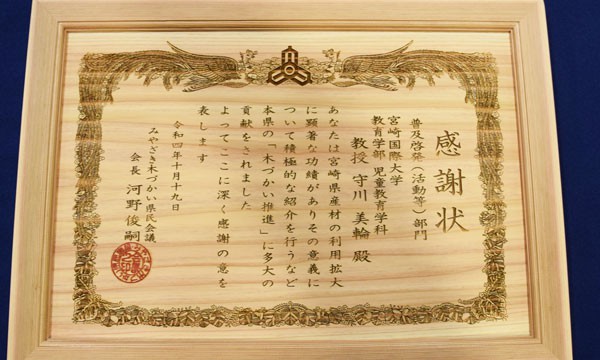 感謝状
普及啓発（活動等）部門
宮崎国際大学
教育学部 児童教育学科
教授 守川 美輪 殿
あなたは宮崎県産材の利用拡大
に顕著な功績がありその意義に
ついて積極的な紹介を行うなど
本県の「木づかい推進」に多大の
貢献をされました
よってここに深く感謝の意を
表します
令和四年十月十九日
みやざき木づかい県民会議
会長 河野俊嗣